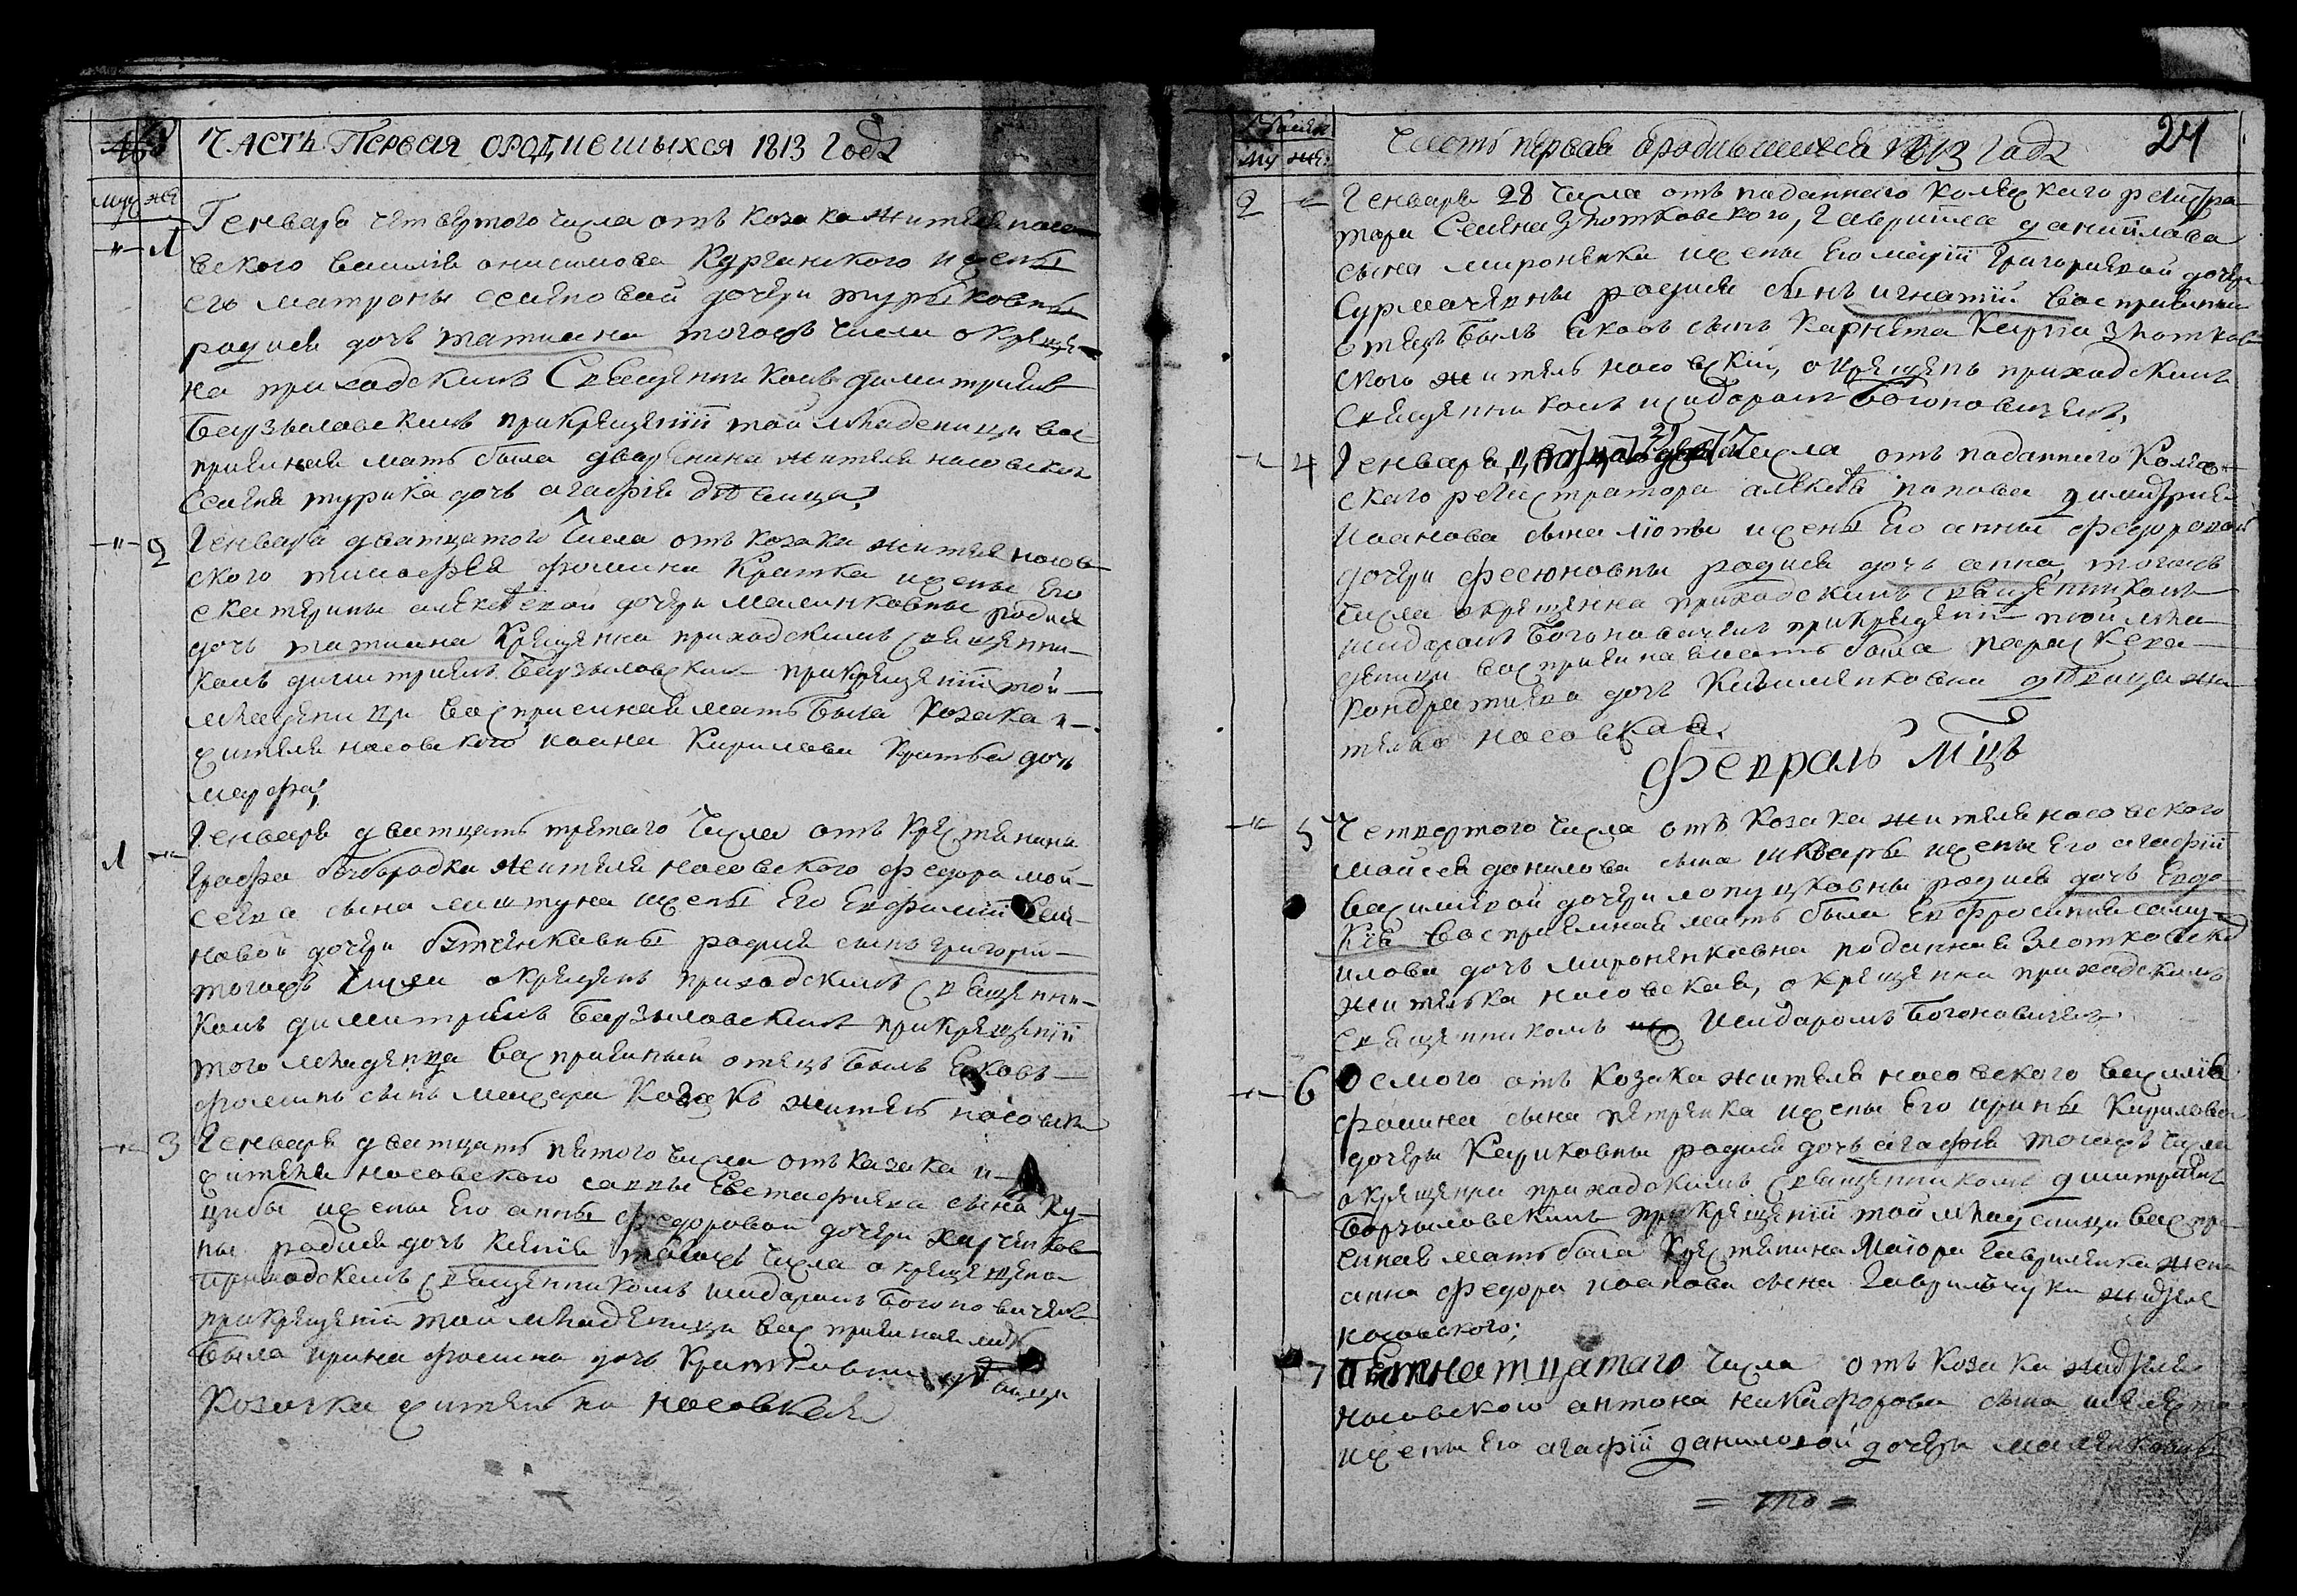 ЧАСТЬ Первая ОРОДИВШЫХСЯ 1813 Года
му же
Генваря четвертого числа отъ козака жителя носо
вского василія онисимова Курганского и жены
его матроны семеновой дочери турыковны
родися дочь татиана тогожъ числа окреще
на приходскимъ Священникомъ димитриемъ
Базыловскимъ прикрещеніи той младеници вос
приемная мать была дворенина жителя носовского
Семена турика дочь агафія дѣвица;
Генваря дватцатого Числа отъ козака жителя носов
ского тимофея фомина Кратка и жены Его
екатерины алексѣевой дочери малинковны родися
дочь татиана Крещенна приходскимъ священни
комъ димитриемъ прикрещеніи той
младеници восприемная мать была козака
жителя носовского иоана Кирилова дочь
марфа;
Генваря дватцать третаго Числа отъ крестянина
графа безбородка жителя носовского федора мой
сеева сына миштуна и жены Его Евфиміи
новой дочери родися сынъ григорій
тогожъ Числа окрещенъ приходскимъ священни
комъ димитриемъ прикрещеніи
того младенца восприемный отецъ былъ Яковъ
фоминъ сынъ козакъ житель носовски
Генваря дватцать пятого числа отъ казака
жителя носовского саввы Евстафиева сына Ку
цибы и жены Его анны федоровой дочери харченков
ны родися дочь Ксенія тогожъ числа окрещенна
приходскимъ священникомъ исидоромъ Богоновичемъ
прикрещеніи той младеници восприемная мать
была ирина фомина дочь дѣвица
Козачка жителька носовская
24
му же
Часть первая ородившихся 1813 Года
2 Генваря 28 числа отъ подданнаго колежскаго регистра
тора Семена Злотковского, Гавриила даниілова
сына мироненка и жены Его маріи Григориевой дочери
Сурмачевны родися сынъ игнатій восприемны
отецъ былъ Яковъ сынъ Карнета Карпа Злотков
ского житель носовскій, окрещенъ приходскимъ
священникомъ исидоромъ Богоновичемъ,
4 Генваря 29 Числа отъ подданнаго Колеж
скаго регистратора алексѣя попова димитрия
Иоанова сына люты и жены Его анны федоровой
дочери фесюновны родися дочь анна, тогожъ
числа окрещенна приходскимъ священникомъ
исидоромъ Богоновичемъ прикрещеніи той мла
деници восприемна мать была параскева
кондратиева дочь дѣвица жи
телька носовская.
Февраль Мцъ
5 Четвертого Числа отъ Козака жителя носовского
мойсея данилова сына шквары и жены Его агафіи
василиевой дочери лопушковны родися дочь Евдо
кія восприемная мать была Евфросинія саму
илова дочь мироненковна подданная Злотковско
жителька носовская, окрещенна приходскимъ
священникомъ Исидоромъ Богоновичемъ.
6 Осмого отъ Козака жителя носовского василія
фомина сына петренка и жены Его ирины Кирилова
дочери Кариковны родися дочь агафія тогожъ числа
окрещенна приходскимъ священникомъ димитриемъ
Борзыловскимъ прикрещеніи той младеници воспри
емная мать была Крестянина Маіора Гавриленка жена
анна федора иоанова сына Гаврилчука жителя
носовского;
7 Пѣтнатцатаго числа отъ козака жителя
Носовского антона никифорова сына
и жены его агафіи даниловой дочери
= тго =